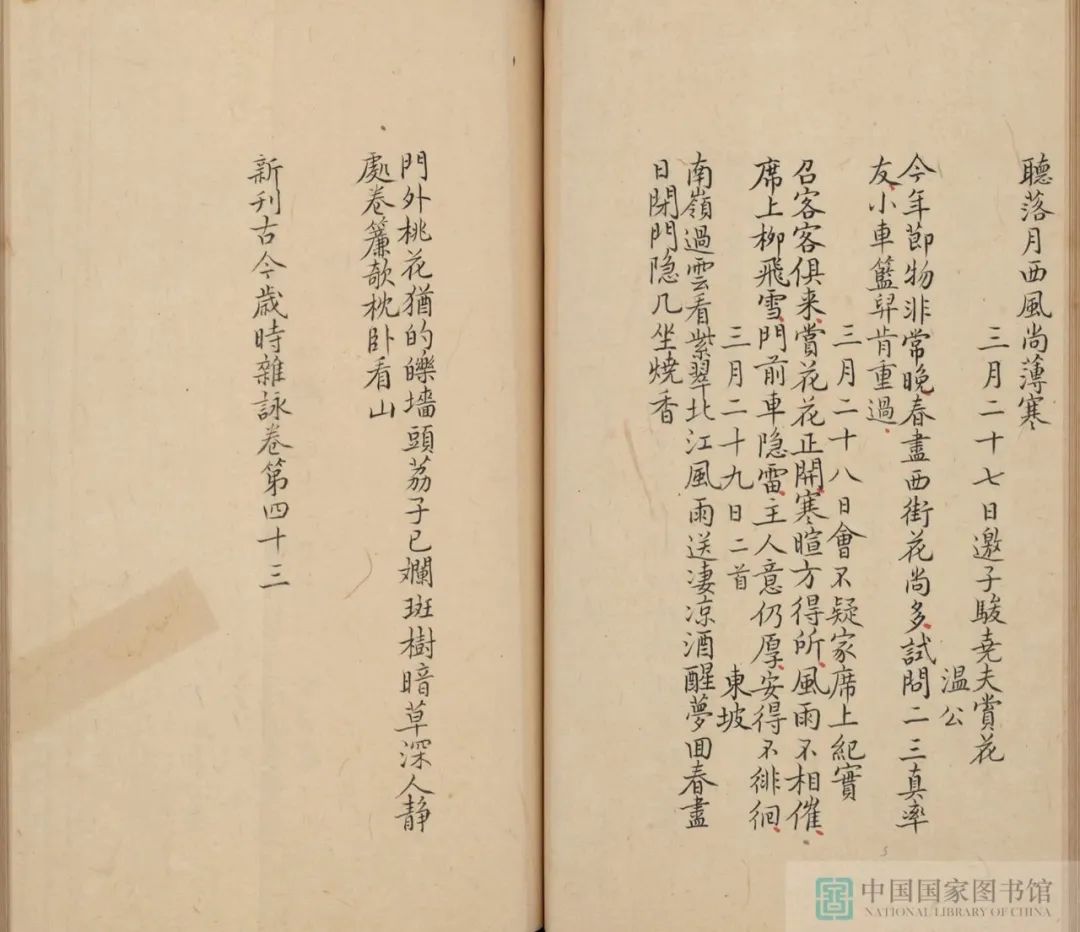 聽落月西風尚薄寒
三月二十七日邀子駿堯夫賞花
溫公
今年節物非常晚春盡西街花尚多試問二三真率
友小車籃舁肯重過
三月二十八日會不疑家席上紀實
召客客俱来賞花花正開寒暄方得所風雨不相催
席上柳飛雪門前車隐雷主人意仍厚安得不徘徊
三月二十九日二首 東坡
南嶺過雲看紫翠北江風雨送凄凉酒醒夢回春盡
日閉門隐几坐燒香
門外桃花猶的皪墻頭荔子已斕斑樹暗草深人静
處卷簾欹枕卧看山
新刊古今歲時雜詠卷第四十三
中国国家图书馆
NATIONAL LIBRARY OF CHINA